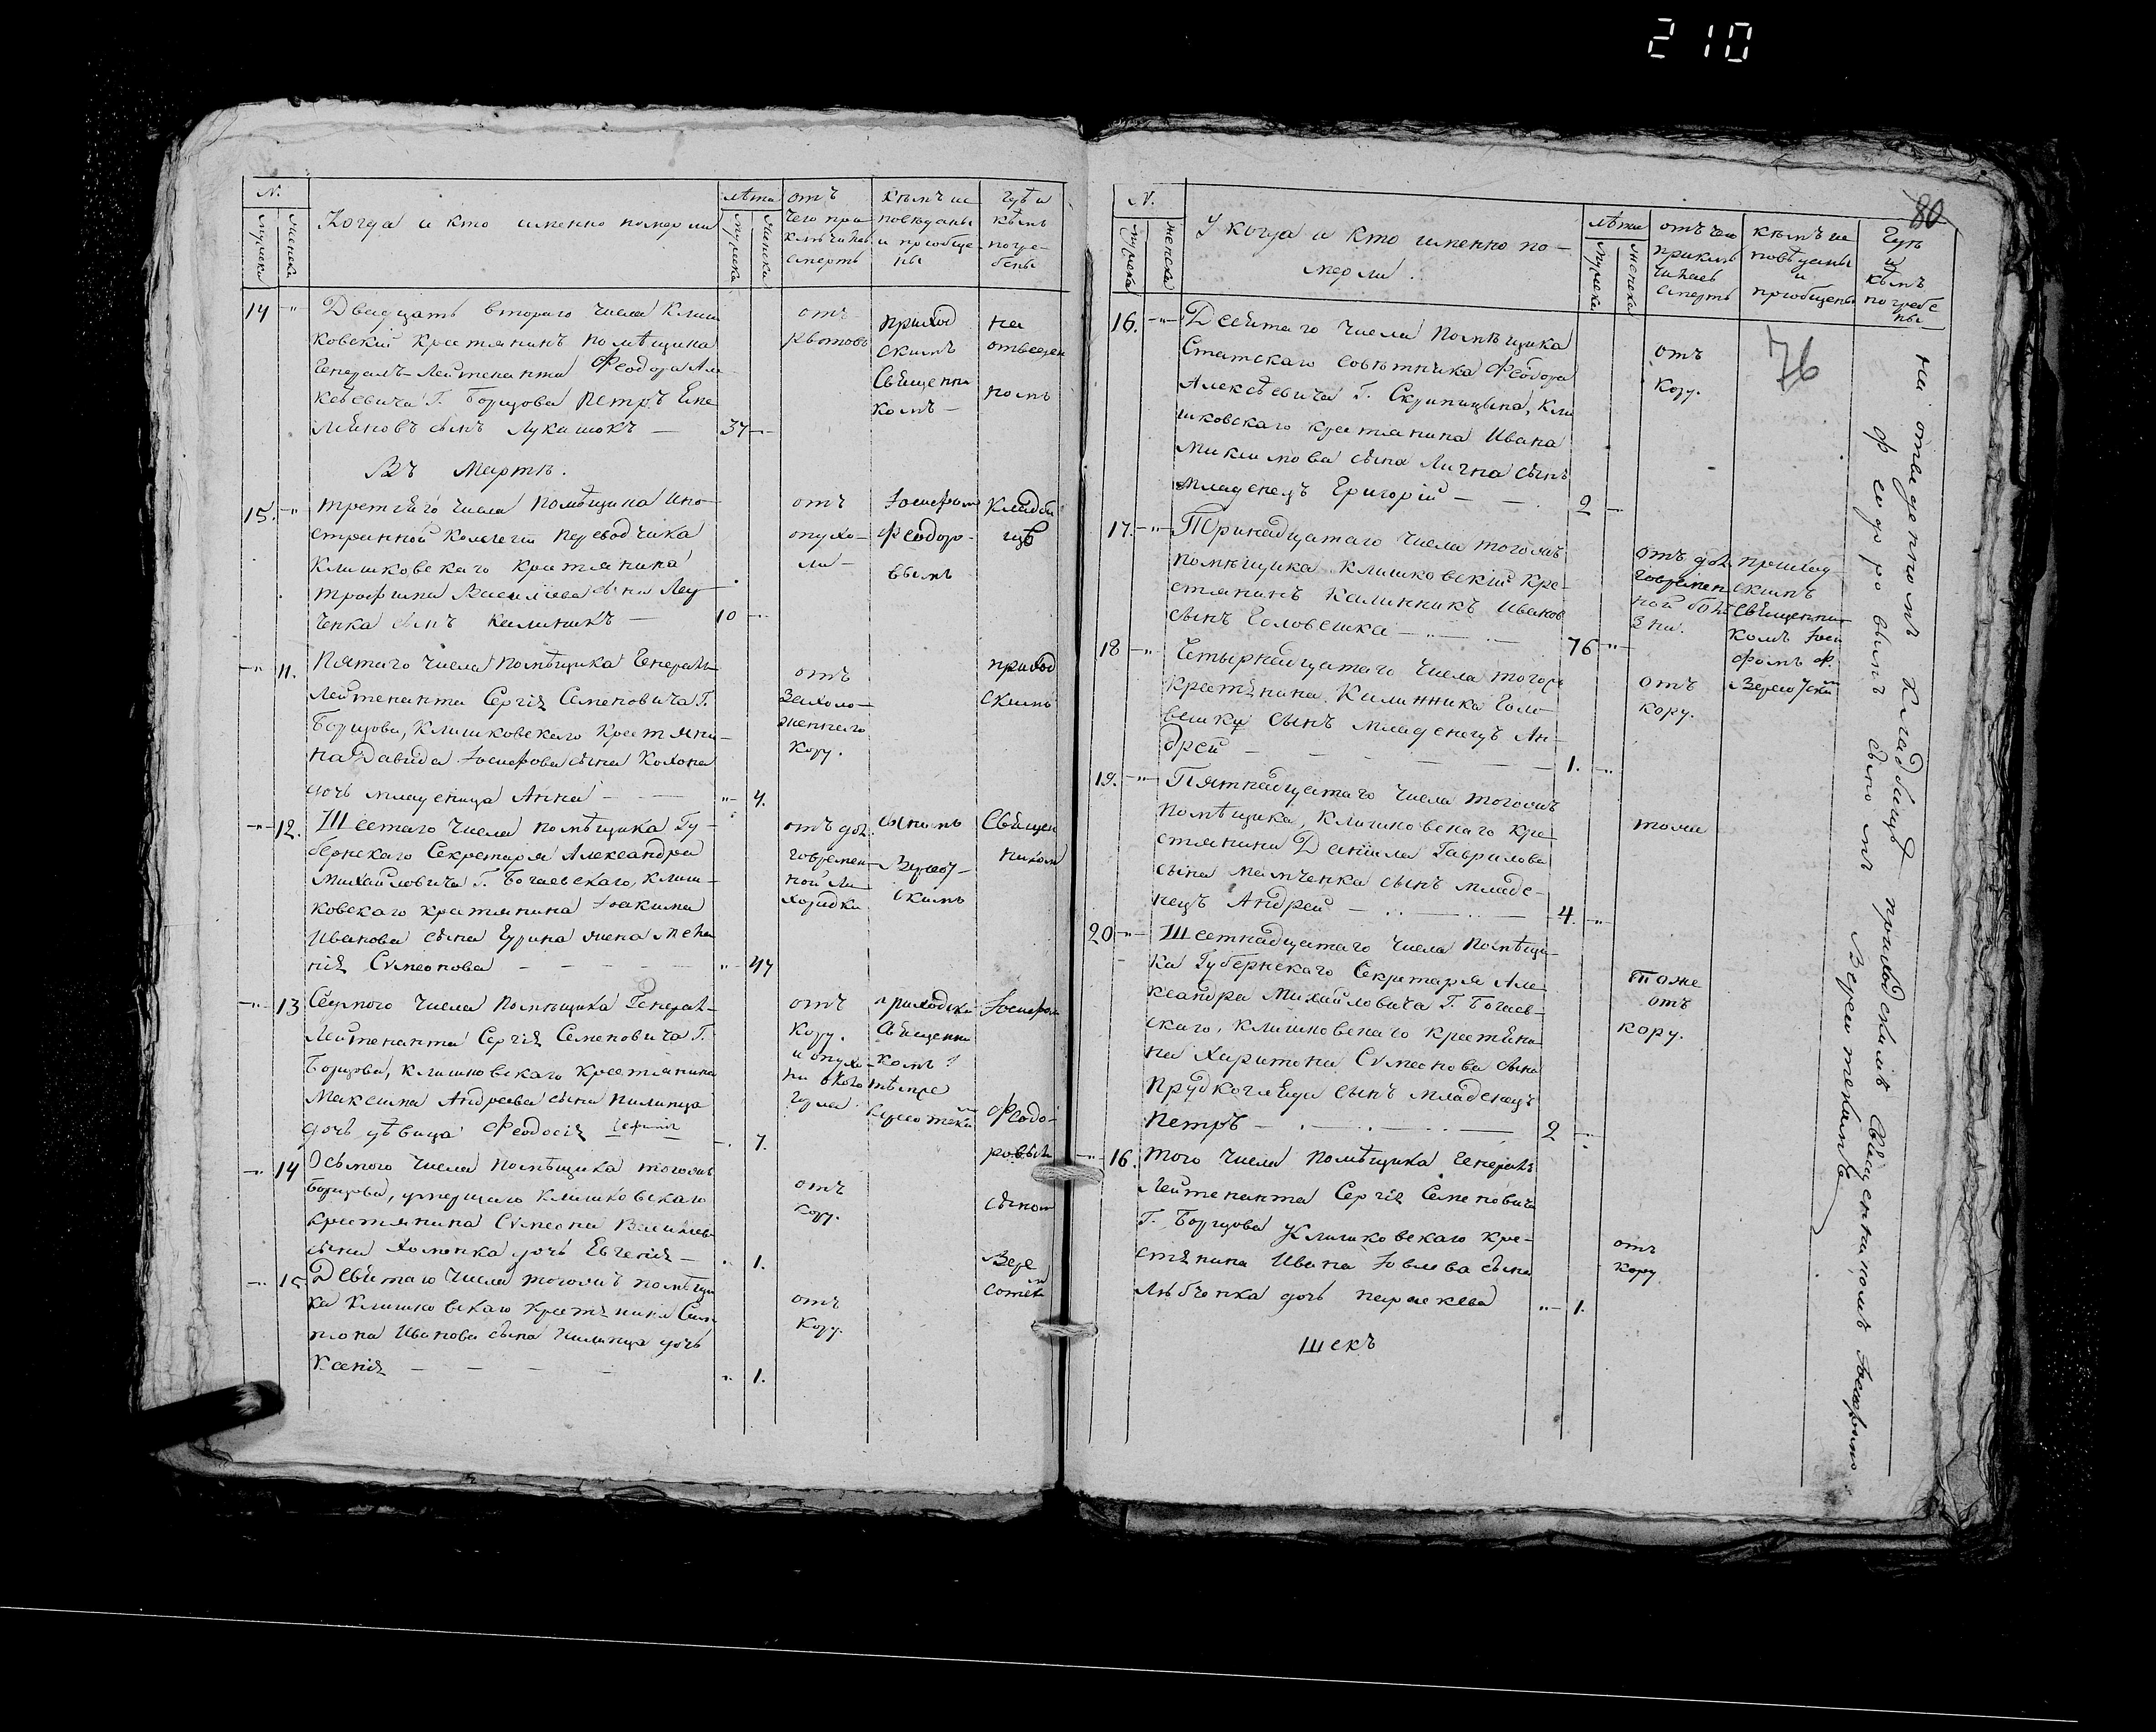 210
80
76
N.
мужеска
женска
Когда и кто именно померли
лѣта
мужеска
женска
отъ
чего при
ключилась
смерть
кѣмъ ис
повѣданы
и приобще
ны
Гдѣ и
кѣмъ
погре-
бены
14 Двадцать втораго числа Клиш
ковскій крестянинъ помѣщика
Генералъ-Лейтенанта Феодора Але
ксѣевича Г. Борщова Петръ
сынъ Лукашокъ — 37
отъ
приход
скимъ
Священни
комъ —
на
отведен
номъ
Въ Мартѣ.
15. третяго числа помѣщика ино
странной Коллегіи переводчика
Клишковскаго крестянина
трофима Василіева сына
ченка сынъ Калиникъ — 10
отъ
опухо-
ли —
Іосифом
Феодоро-
вымъ
Кладби
щѣ
11. Пятаго числа помѣщика Генералъ
Лейтенанта Сергія Семеновича Г.
Борщова, Клишковскаго крестяни-
на Давида Іосифова сына
дочь младеница Анна — 4.
отъ
кору.
приход
скимъ
12. Шестаго числа помѣщика Гу-
бернскаго Секретаря Александра
Михайловича Г. Богаевскаго, Клиш-
ковскаго крестянина Іоакима
Иванова сына жена
Сумеонова — 47
отъ дол
говремен
ной ли
хорадки
сыномъ
Священ
ником
13 Седмого числа помѣщика Генералъ-
Лейтенанта Сергія Семеновича Г.
Борщова, Клишковскаго крестянина
Максима Андреева сына Пилипца
дочь дѣвица Феодосія 7.
отъ
кору.
и опухо
ли около
горла
приходски
Священни
комъ
Іосифом
Феодо-
ровым
14 Осьмого числа помѣщика тогожъ
Борщова, умершаго Клишковскаго
крестянина Сумеона Василіева
сына Хоменка дочь Евгенія — 1.
отъ
кору.
сыном
15 Девятаго числа тогожъ помѣщи
ка Клишковскаго крестянина
Иванова сына Пилипца дочь
Ксенія — 1.
отъ
кору.
N.
мужеска
женска
когда и кто именно по-
мерли.
лѣта
мужеска
женска
отъ чего
приклю
чилась
смерть
кѣмъ ис
повѣданы
и
приобщены
Гдѣ
и
кѣмъ
погребе
ны
16. Десятаго числа помѣщика
Статскаго совѣтника Феодора
Алексѣевича Г. Скрипицына, Кли
шковскаго крестянина Ивана
сына сынъ
младенецъ Григорій — 2
отъ
кору.
17. Тринадцатаго числа тогожъ
помѣщика Клишковскій кре-
стянинъ Калинникъ Иванов
сынъ Головешка — 76
отъ дол
говремен
ной болѣ
зни.
приход
скимъ
Священни
комъ Іоси
фомъ Ф.
18 Четырнадцатаго числа тогожъ
крестянина Калинника Голо
вешки сынъ младенецъ Ан-
дрей — 1.
отъ
кору.
19. Пятнадцатаго числа тогожъ
помѣщика, Клишковскаго кре
стянина Даніила Гаврилова
сына сынъ младе-
нецъ Андрей — 4.
тожъ
20 Шестнадцатаго числа помѣщи-
ка Губернскаго Секретаря Але
ксандра Михайловича Г. Богаев-
скаго, Клишковскаго крестяни-
на Харитона Сумеонова сына
сынъ младенецъ
Петръ — 2
тоже
отъ
кору.
16. того числа помѣщика Генералъ
Лейтенанта Сергія Семеновича
Г. Борщова Клишковскаго кре-
стянина Ивана Іовлева сына
дочь Параскева 1.
отъ
кору.
на отведенномъ кладбищѣ приходскимъ Священникомъ Іосифомъ
Феодоровымъ сыномъ